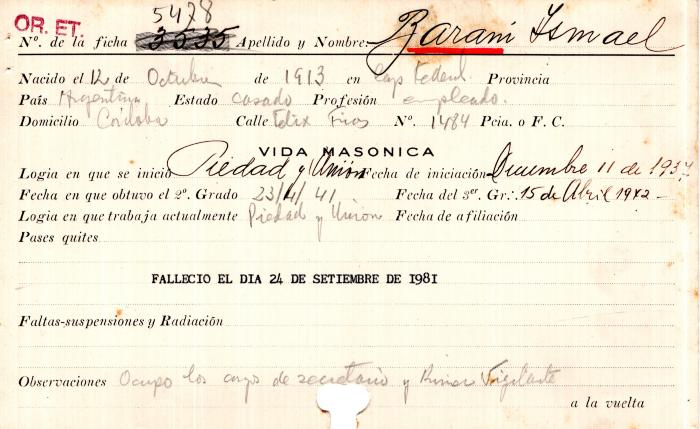 5478
OR. ET.
Nº. de la ficha 3535 Apellido y Nombre: Barani Ismael
Nacido el 12 de Octubre de 1913 en Cap Federal Provincia
País Argentina Estado casado Profesión empleado.
Domicilio Córdoba Calle Felix Frias Nº. 1484 Pcia. o F. C.
VIDA MASONICA
Logia en que se inició Piedad y Unión Fecha de iniciación Diciembre 11 de 1937
Fecha en que obtuvo el 2º. Grado 23/4/41 Fecha del 3er Gr∴ 15 de Abril 1942 -
Logia en que trabaja actualmente Piedad y Union Fecha de afiliación
Pases quites
FALLECIO EL DIA 24 DE SETIEMBRE DE 1981
Faltas-suspensiones y Radiación
Observaciones Ocupo los cargos de secretario y Primer Vigilante
a la vuelta